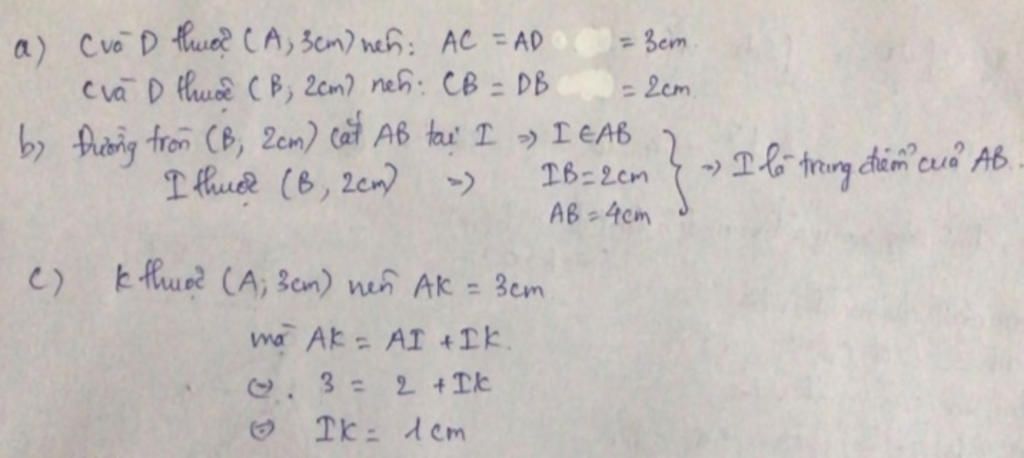 a) C và D thuộc (A; 3cm) nên: AC = AD = 3cm
C và D thuộc (B; 2cm) nên: CB = DB = 2cm
b) Đường tròn (B, 2cm) cắt AB tại I => I ∈ AB
I thuộc (B, 2cm) => IB = 2cm } => I là trung điểm của AB.
AB = 4cm
c) K thuộc (A; 3cm) nên AK = 3cm
mà AK = AI + IK.
⇔. 3 = 2 + IK
⇔ IK = 1cm